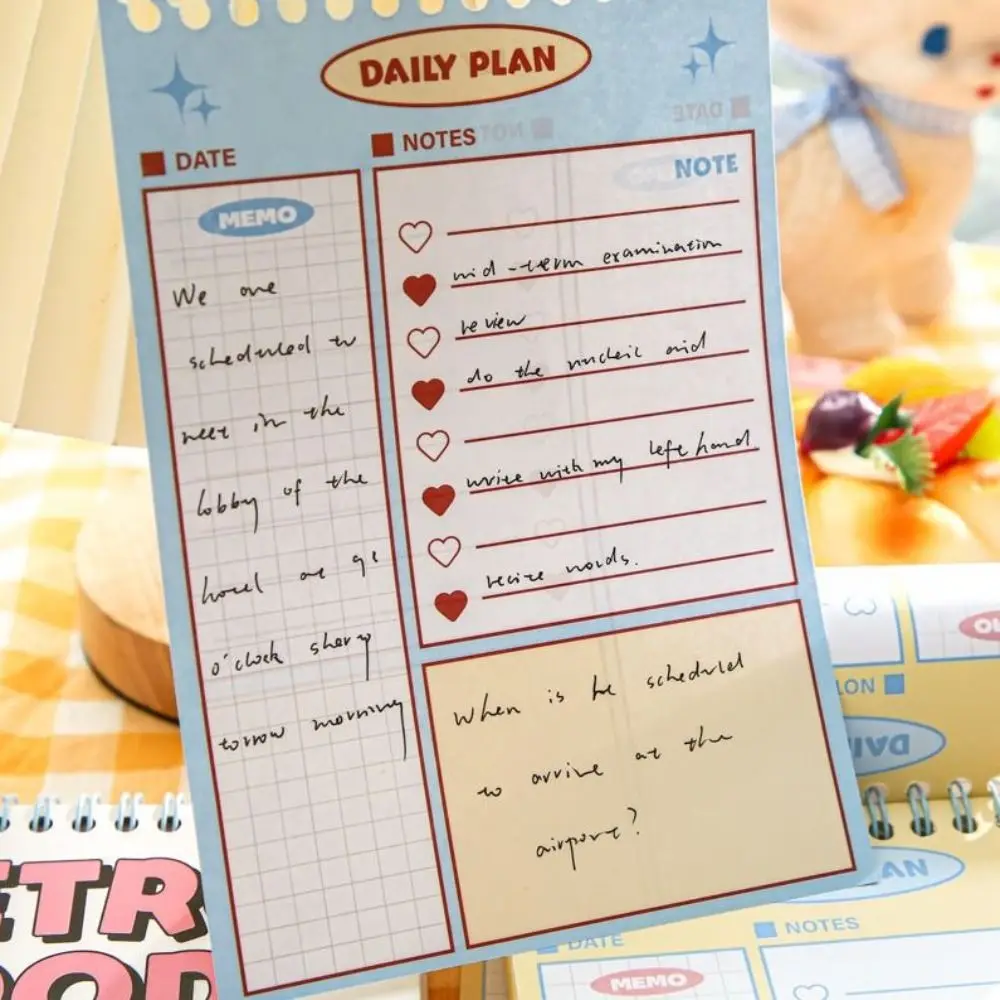 DAILY PLAN
DATE
NOTES
MEMO
We are
scheduled to
meet in the
lobby of the
hotel at
o'clock sharp
torrow morning
NOTE
mid-term examination
review
do the nucleic acid
write with my left hand
recite words.
When is he scheduled
to arrive at the
airport?
DATE
NOTES
MEMO